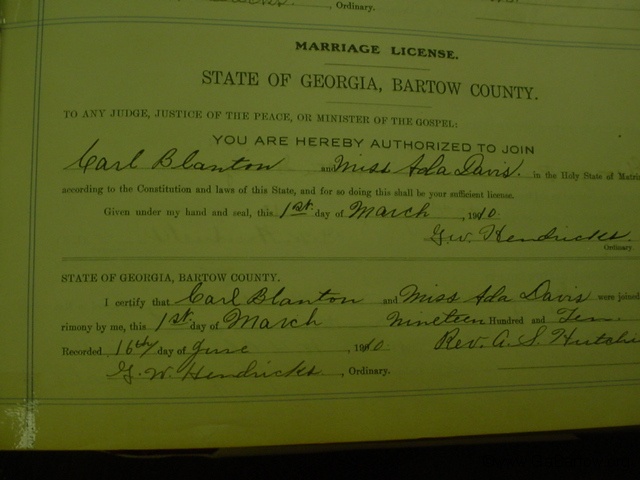 , Ordinary.
MARRIAGE LICENSE.
STATE OF GEORGIA, BARTOW COUNTY.
TO ANY JUDGE, JUSTICE OF THE PEACE, OR MINISTER OF THE GOSPEL:
YOU ARE HEREBY AUTHORIZED TO JOIN
Carl Blanton and Miss Ada Davis. in the Holy State of Matri
according to the Constitution and laws of this State, and for so doing this shall be your sufficient license.
Given under my hand and seal, this 1st day of March , 1910.
G.W. Hendricks.
Ordinary.
STATE OF GEORGIA, BARTOW COUNTY.
I certify that Carl Blanton and Miss Ada Davis were joined
rimony by me, this 1st day of March nineteen Hundred and Ten.
Recorded 16th day of June , 1910 Rev. A. S. Hutche
G. W. Hendricks , Ordinary.